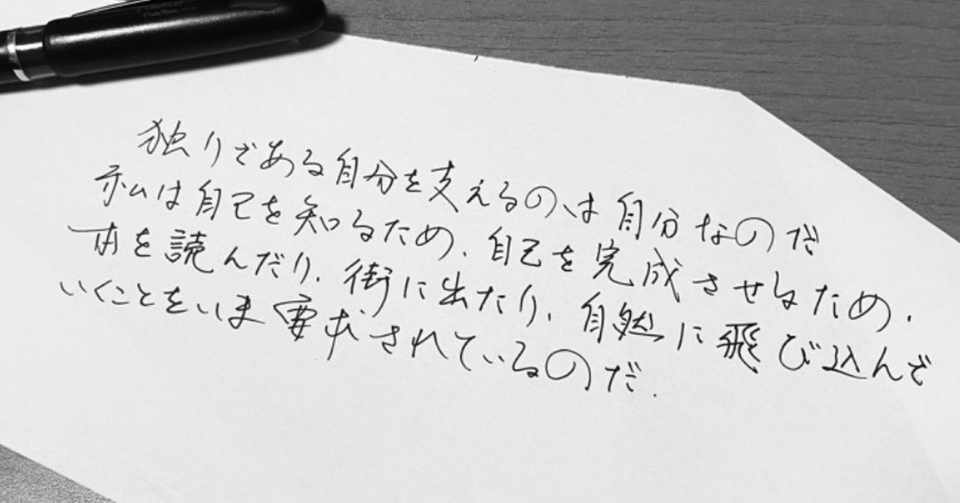 独りである自分を支えるのは自分なのだ
私は自己を知るため、自己を完成させるため、
本を読んだり、街に出たり、自然に飛び込んで
いくことをいま要求されているのだ.